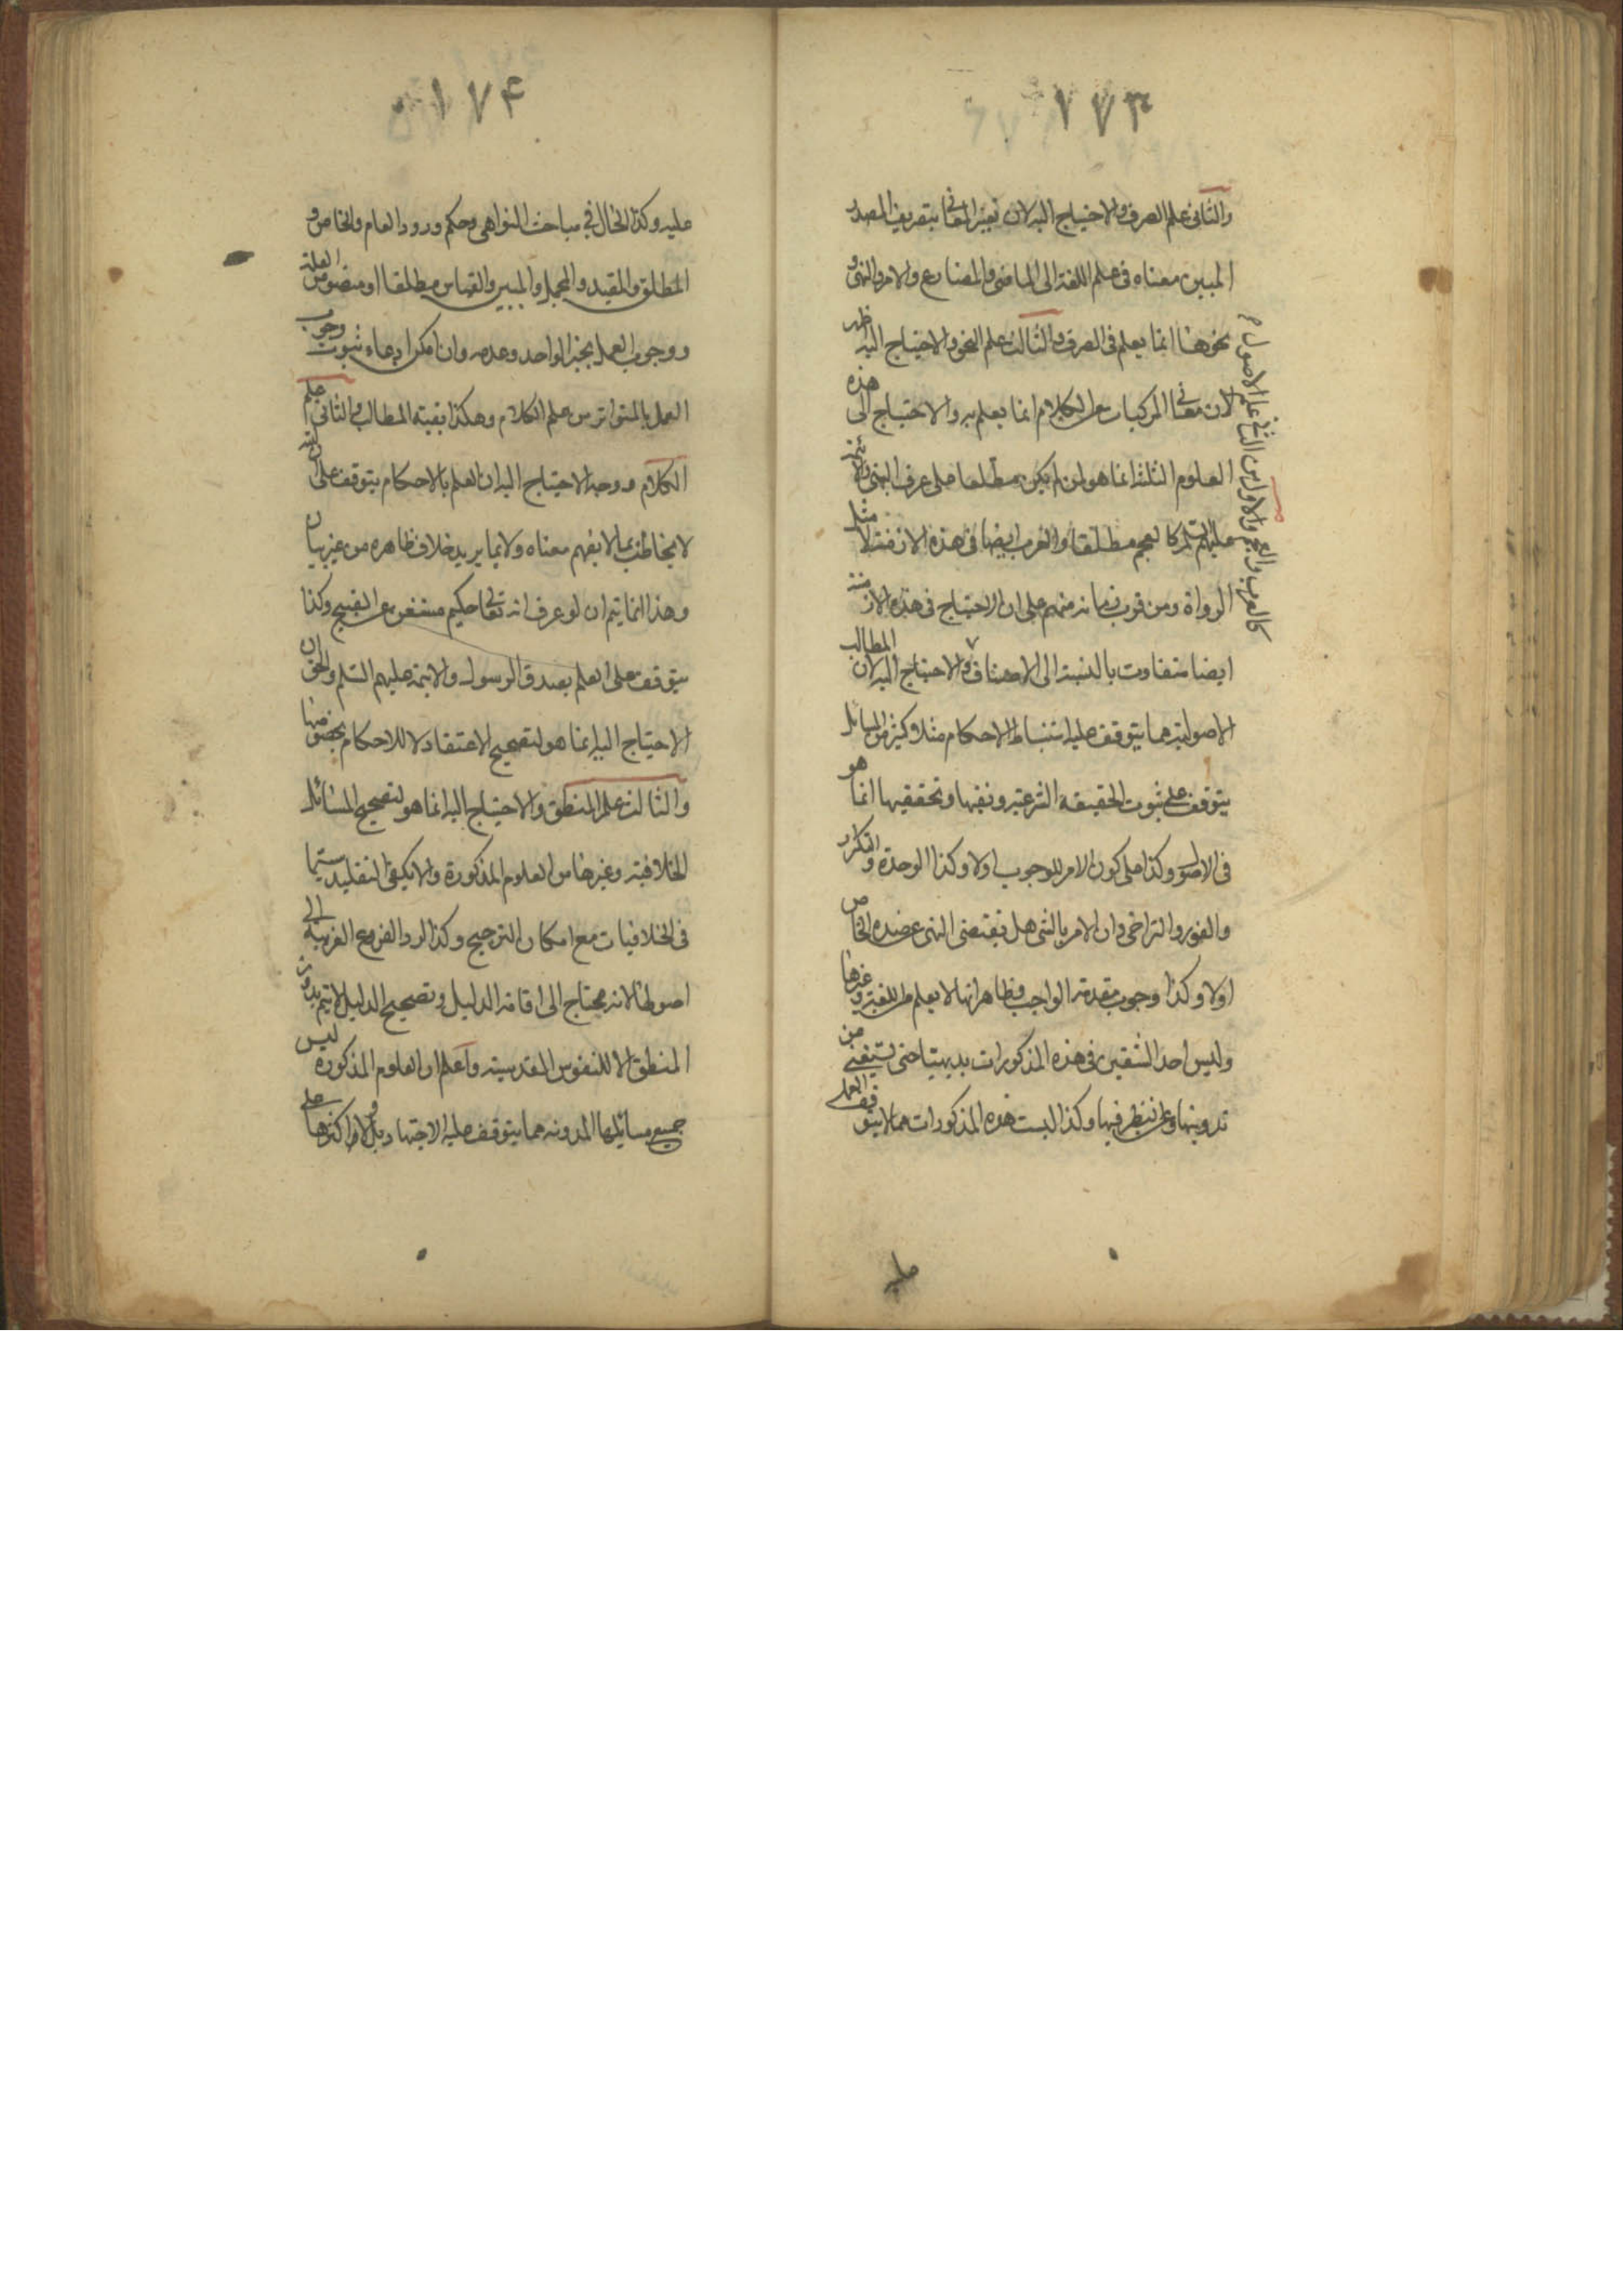 ١٧٣
والثانى علم الصرف والاحتياج اليه لان تغير المعانى بتصريف المصدر
المبين معناه فى علم اللغة الى الماضى والمضارع والامر والنهى و
نحوها انما يعلم فى الصرف والثالث علم النحو والاحتياج اليه ظهر
لان معانى المركبات من الكلام انما يعلم به والاحتياج الى هذه
العلوم الثلثة انما هو لمن لم يكن مطلعا على عرف النبى والائمة
عليهم السلم كالعجم مطلقا والعرب ايضا فى هذه الازمنة لا مثل
الرواة ومن قرب زمانه منهم على ان الاحتياج فى هذه الازمنة
ايضا متفاوت بالنسبة الى الاصناف والاحتياج اليه لان المطالب
كالعرب والعجم والاول من الثانى علم الاصول
الاصولية مما يتوقف عليه استنباط الاحكام مثلا كثير من المسائل
يتوقف على ثبوت الحقيقة الشرعية ونفيها وتحقيقها انما هو
فى الاصول وكذا على كون الامر للوجوب اولا وكذا الوحدة والتكرار
والفور والتراخى وان الامر بالشى هل يقتضى النهى عن ضده الخاص
اولا وكذا وجوب مقدمة الواجب وظاهر انها لا يعلم من اللغة وغيرها
وليس احد الشقين فى هذه المذكورات بديهيا حتى يستغنى من
تدوينها وعن النظر فيها وكذا ليست هذه المذكورات مما لا يتوقف العمل
عليه
١٧٤
عليه وكذا الحال فى مباحث النواهى وحكم ورود العام والخاص و
المطلق والمقيد والمجمل والمبين والقياس مطلقا او منصوص العلة
ووجوب العمل بخبر الواحد وعدمه وان امكن ادعاء ثبوت وجوب
العمل بالمتواتر من علم الكلام وهكذا بقية المطالب والثانى علم
الكلام ووجه الاحتياج اليه ان العلم بالاحكام يتوقف على ان الله
لا يخاطب بما لا يفهم معناه ولا بما يريد خلاف ظاهره من غير بيان
وهذا انما يتم ان لو عرف انه تعالى حكيم مستغن عن القبيح وكذا
يتوقف على العلم بصدق الرسول والائمة عليهم السلم والحق ان
الاحتياج اليه انما هو لتصحيح الاعتقاد لا للاحكام بخصوصها
والثالث علم المنطق والاحتياج اليه انما هو لتصحيح المسائل
الخلافية وغيرها من العلوم المذكورة والا يكفى التقليد سيما
فى الخلافيات مع امكان الترجيح وكذا لرد الفروع الغريبة الى
اصولها لانه محتاج الى اقامة الدليل وتصحيح الدليل لا يتم بدون
المنطق الا للنفوس القدسية واعلم ان العلوم المذكورة ليس
جميع مسائلها المدونة مما يتوقف عليه الاجتهاد بل ولا اكثرها على